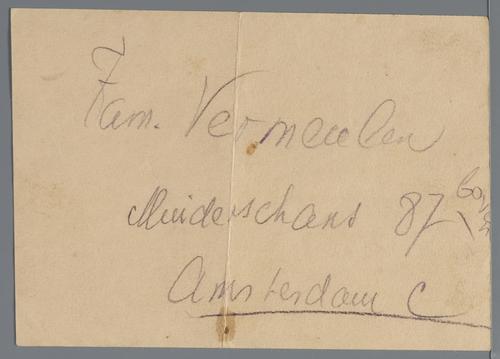 Fam. Vermeulen
Muiderschans 87 boven
Amsterdam C